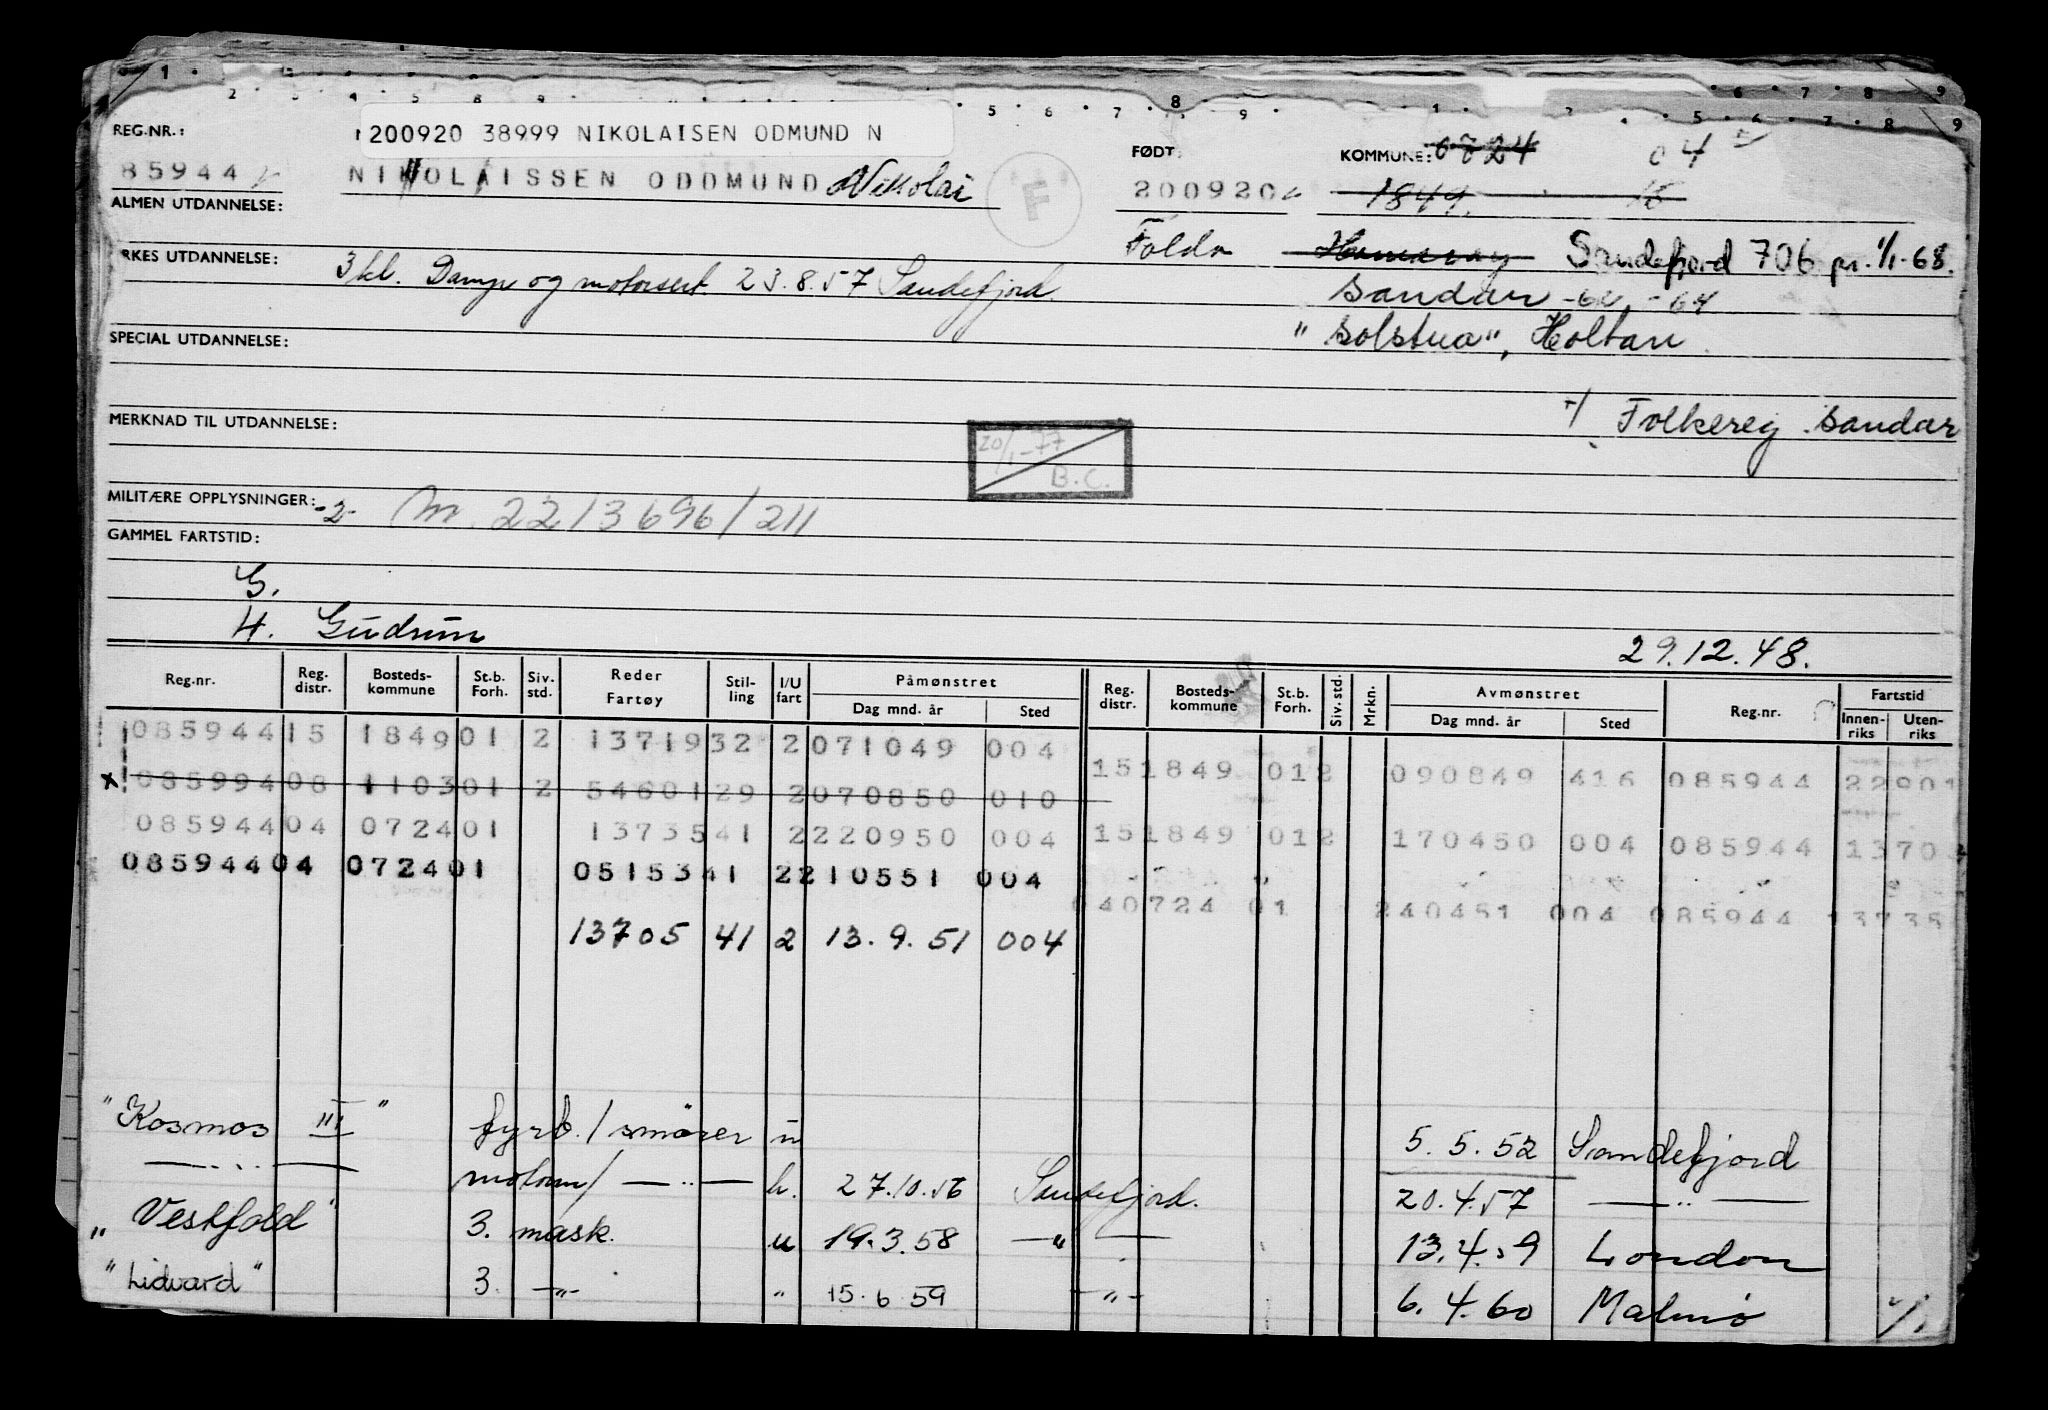 REG.NR.:
200920 38999 NIKOLAISEN ODMUND N
FØDT:
KOMMUNE: 0724 04
85944
NIKOLAISSEN ODDMUND Nikolai
F
200920
1849. 15
ALMEN UTDANNELSE:
Foldn Hamarøy Sandefjord 706 pr. 1/1-68.
YRKES UTDANNELSE: 3 kl. Damp og motorsert. 23.8.57 Sandefjord.
Sandar -62 -64
"Solstua", Holtan
SPECIAL UTDANNELSE:
Folkereg. Sandar
MERKNAD TIL UTDANNELSE:
20/1-77
B.C.
MILITÆRE OPPLYSNINGER: -2- M. 2213696/211
GAMMEL FARTSTID:
G.
H. Gudrun
29.12.48.
Reg.nr. Reg. distr. Bosteds-kommune St.b. Forh. Siv. std. Reder Fartøy Stil-ling I/U fart Påmønstret Dag mnd. år Sted Reg. distr. Bosteds-kommune St.b. Forh. Siv. std. Mrkn. Avmønstret Dag mnd. år Sted Reg.nr. Fartstid Innen-riks Uten-riks
085944 15 1849 01 2 13719 32 2 071049 004
15 1849 012 090849 416 085944 22901
x 085994 08 1103 01 2 54601 29 2 070850 010
085944 04 0724 01 13735 41 2 220950 004
15 1849 012 170450 004 085944 1370
085944 04 0724 01 05153 41 2 210551 004
04 0724 01 240451 004 085944 13735
13705 41 2 13.9.51 004
"Kosmos III" fyrb./smører u 5.5.52 Sandefjord
—"— motorm/ —"— h. 27.10.56 Sandefjord. 20.4.57 —"—
"Vestfold" 3. mask. u 19.3.58 —"— 13.4.59 London
"Lidvard" 3. —"— " 15.6 59 —"— 6.4.60 Malmø